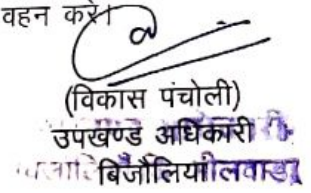 वहन करें।
(विकास पंचोली)
उपखण्ड अधिकारी
बिजौलिया